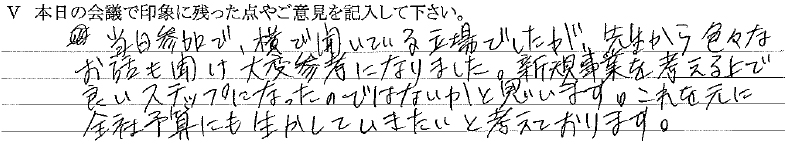 V 本日の会議で印象に残った点やご意見を記入して下さい。
当日参加で、横で聞いている立場でしたが、先生から色々な
お話も聞け大変参考になりました。新規事業を考える上で
良いステップになったのではないかと思います。これを元に
全社予算にも生かしていきたいと考えております。